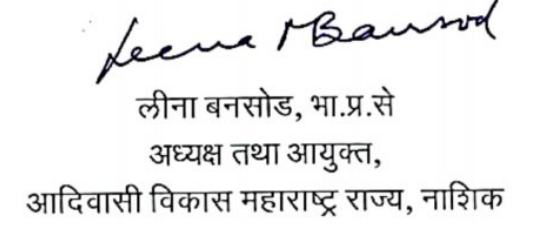 Leena Bansod
लीना बनसोड, भा.प्र.से
अध्यक्ष तथा आयुक्त,
आदिवासी विकास महाराष्ट्र राज्य, नाशिक